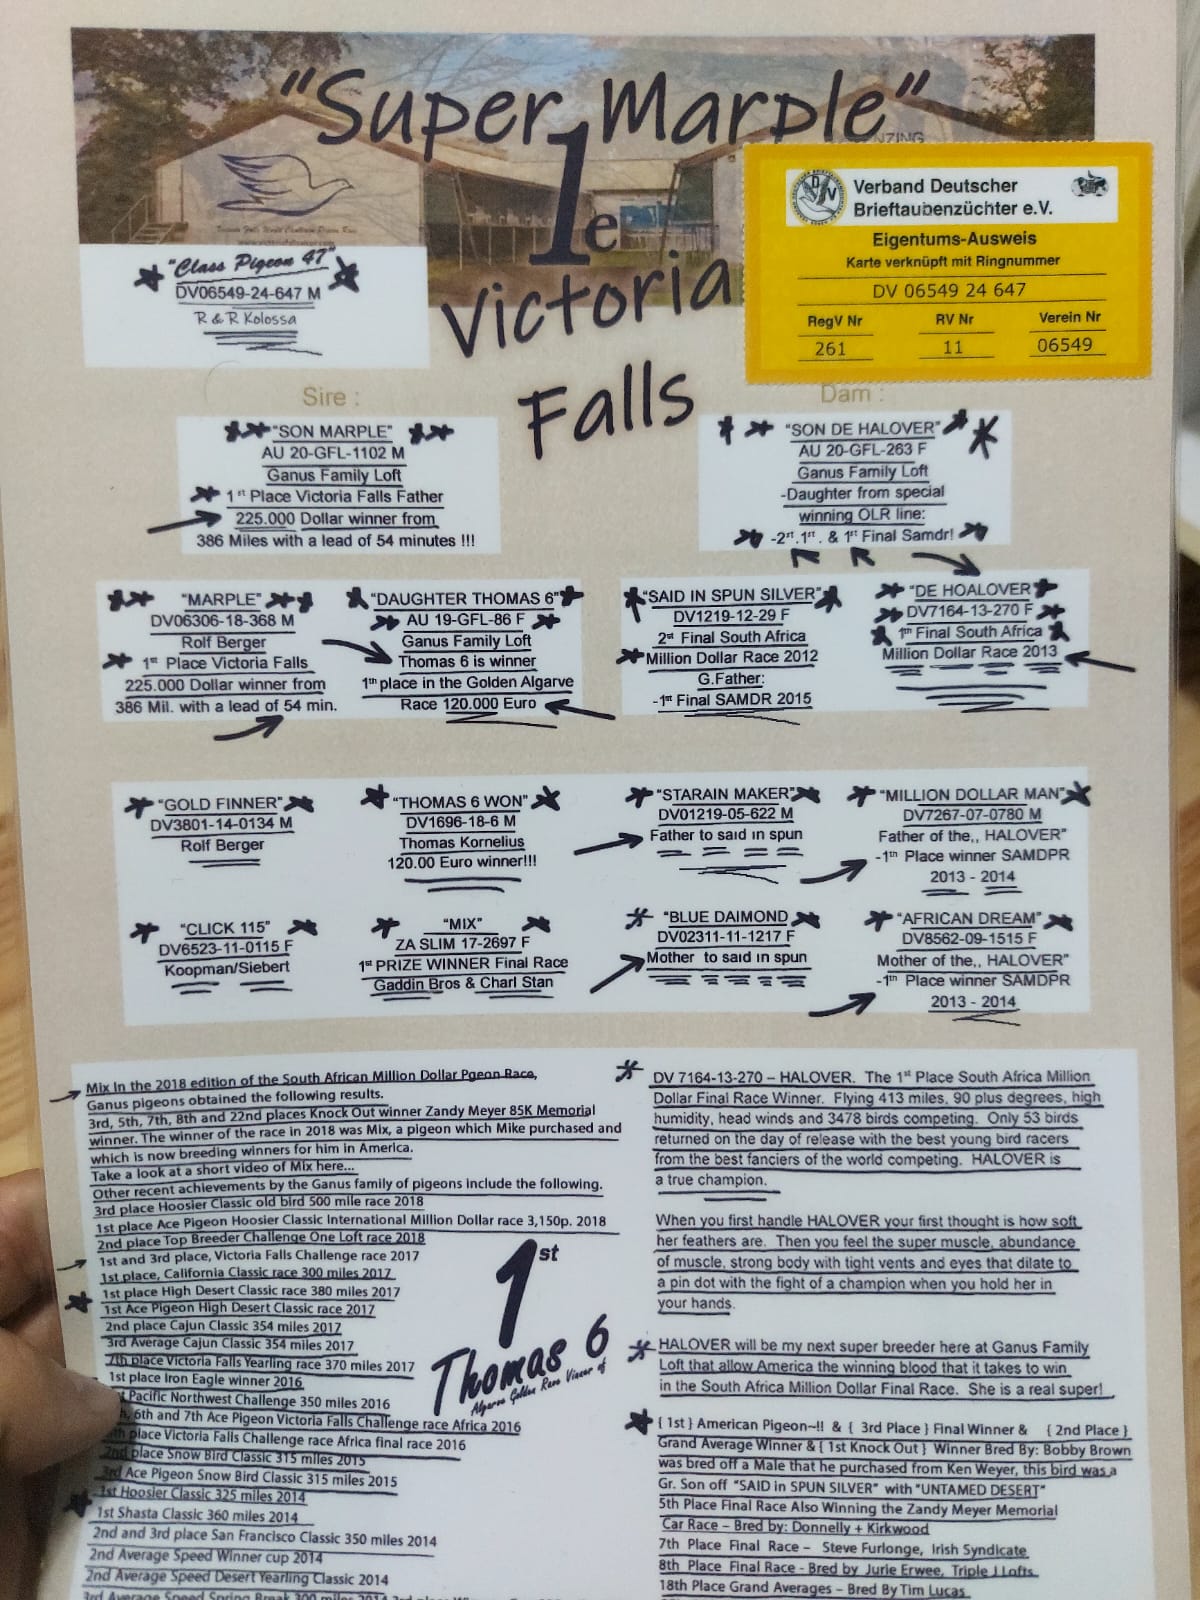 "Super Marple"
1e
Victoria
Falls
NZING
Victoria Falls World Challenge Pigeon Race
"Class Pigeon 47"
DV06549-24-647 M
R & R Kolossa
Verband Deutscher
Brieftaubenzüchter e.V.
Eigentums-Ausweis
Karte verknüpft mit Ringnummer
DV 06549 24 647
RegV Nr RV Nr Verein Nr
261 11 06549
Sire :
"SON MARPLE"
AU 20-GFL-1102 M
Ganus Family Loft
1st Place Victoria Falls Father
225.000 Dollar winner from
386 Miles with a lead of 54 minutes !!!
Dam :
"SON DE HALOVER"
AU 20-GFL-263 F
Ganus Family Loft
-Daughter from special
winning OLR line:
-2st.1st. & 1st Final Samdr!
"MARPLE"
DV06306-18-368 M
Rolf Berger
1st Place Victoria Falls
225.000 Dollar winner from
386 Mil. with a lead of 54 min.
"DAUGHTER THOMAS 6"
AU 19-GFL-86 F
Ganus Family Loft
Thomas 6 is winner
1th place in the Golden Algarve
Race 120.000 Euro
"SAID IN SPUN SILVER"
DV1219-12-29 F
2st Final South Africa
Million Dollar Race 2012
G.Father:
-1st Final SAMDR 2015
"DE HOALOVER"
DV7164-13-270 F
1th Final South Africa
Million Dollar Race 2013
"GOLD FINNER"
DV3801-14-0134 M
Rolf Berger
"THOMAS 6 WON"
DV1696-18-6 M
Thomas Kornelius
120.00 Euro winner!!!
"STARAIN MAKER"
DV01219-05-622 M
Father to said in spun
"MILLION DOLLAR MAN"
DV7267-07-0780 M
Father of the,, HALOVER"
-1th Place winner SAMDPR
2013 - 2014
"CLICK 115"
DV6523-11-0115 F
Koopman/Siebert
"MIX"
ZA SLIM 17-2697 F
1st PRIZE WINNER Final Race
Gaddin Bros & Charl Stan
"BLUE DAIMOND
DV02311-11-1217 F
Mother to said in spun
"AFRICAN DREAM"
DV8562-09-1515 F
Mother of the,, HALOVER"
-1th Place winner SAMDPR
2013 - 2014
Mix In the 2018 edition of the South African Million Dollar Pgeon Race,
Ganus pigeons obtained the following results.
3rd, 5th, 7th, 8th and 22nd places Knock Out winner Zandy Meyer 85K Memorial
winner. The winner of the race in 2018 was Mix, a pigeon which Mike purchased and
which is now breeding winners for him in America.
Take a look at a short video of Mix here...
Other recent achievements by the Ganus family of pigeons include the following.
3rd place Hoosier Classic old bird 500 mile race 2018
1st place Ace Pigeon Hoosier Classic International Million Dollar race 3,150p. 2018
2nd place Top Breeder Challenge One Loft race 2018
1st and 3rd place, Victoria Falls Challenge race 2017
1st place, California Classic race 300 miles 2017
1st place High Desert Classic race 380 miles 2017
1st Ace Pigeon High Desert Classic race 2017
2nd place Cajun Classic 354 miles 2017
3rd Average Cajun Classic 354 miles 2017
7th place Victoria Falls Yearling race 370 miles 2017
1st place Iron Eagle winner 2016
Pacific Northwest Challenge 350 miles 2016
6th and 7th Ace Pigeon Victoria Falls Challenge race Africa 2016
place Victoria Falls Challenge race Africa final race 2016
2nd place Snow Bird Classic 315 miles 2015
3rd Ace Pigeon Snow Bird Classic 315 miles 2015
1st Hoosier Classic 325 miles 2014
1st Shasta Classic 360 miles 2014
2nd and 3rd place San Francisco Classic 350 miles 2014
2nd Average Speed Winner cup 2014
2nd Average Speed Desert Yearling Classic 2014
3rd Average Speed Spring Break 300 miles 2014
1st
Thomas 6
Algarve Golden Race Vinner of
DV 7164-13-270 – HALOVER. The 1st Place South Africa Million
Dollar Final Race Winner. Flying 413 miles, 90 plus degrees, high
humidity, head winds and 3478 birds competing. Only 53 birds
returned on the day of release with the best young bird racers
from the best fanciers of the world competing. HALOVER is
a true champion.
When you first handle HALOVER your first thought is how soft
her feathers are. Then you feel the super muscle, abundance
of muscle, strong body with tight vents and eyes that dilate to
a pin dot with the fight of a champion when you hold her in
your hands.
HALOVER will be my next super breeder here at Ganus Family
Loft that allow America the winning blood that it takes to win
in the South Africa Million Dollar Final Race. She is a real super!
{ 1st } American Pigeon~!! & { 3rd Place } Final Winner & { 2nd Place }
Grand Average Winner & { 1st Knock Out } Winner Bred By: Bobby Brown
was bred off a Male that he purchased from Ken Weyer, this bird was a
Gr. Son off "SAID in SPUN SILVER" with "UNTAMED DESERT"
5th Place Final Race Also Winning the Zandy Meyer Memorial
Car Race – Bred by: Donnelly + Kirkwood
7th Place Final Race – Steve Furlonge, Irish Syndicate
8th Place Final Race - Bred by Jurie Erwee, Triple J Lofts
18th Place Grand Averages – Bred By Tim Lucas